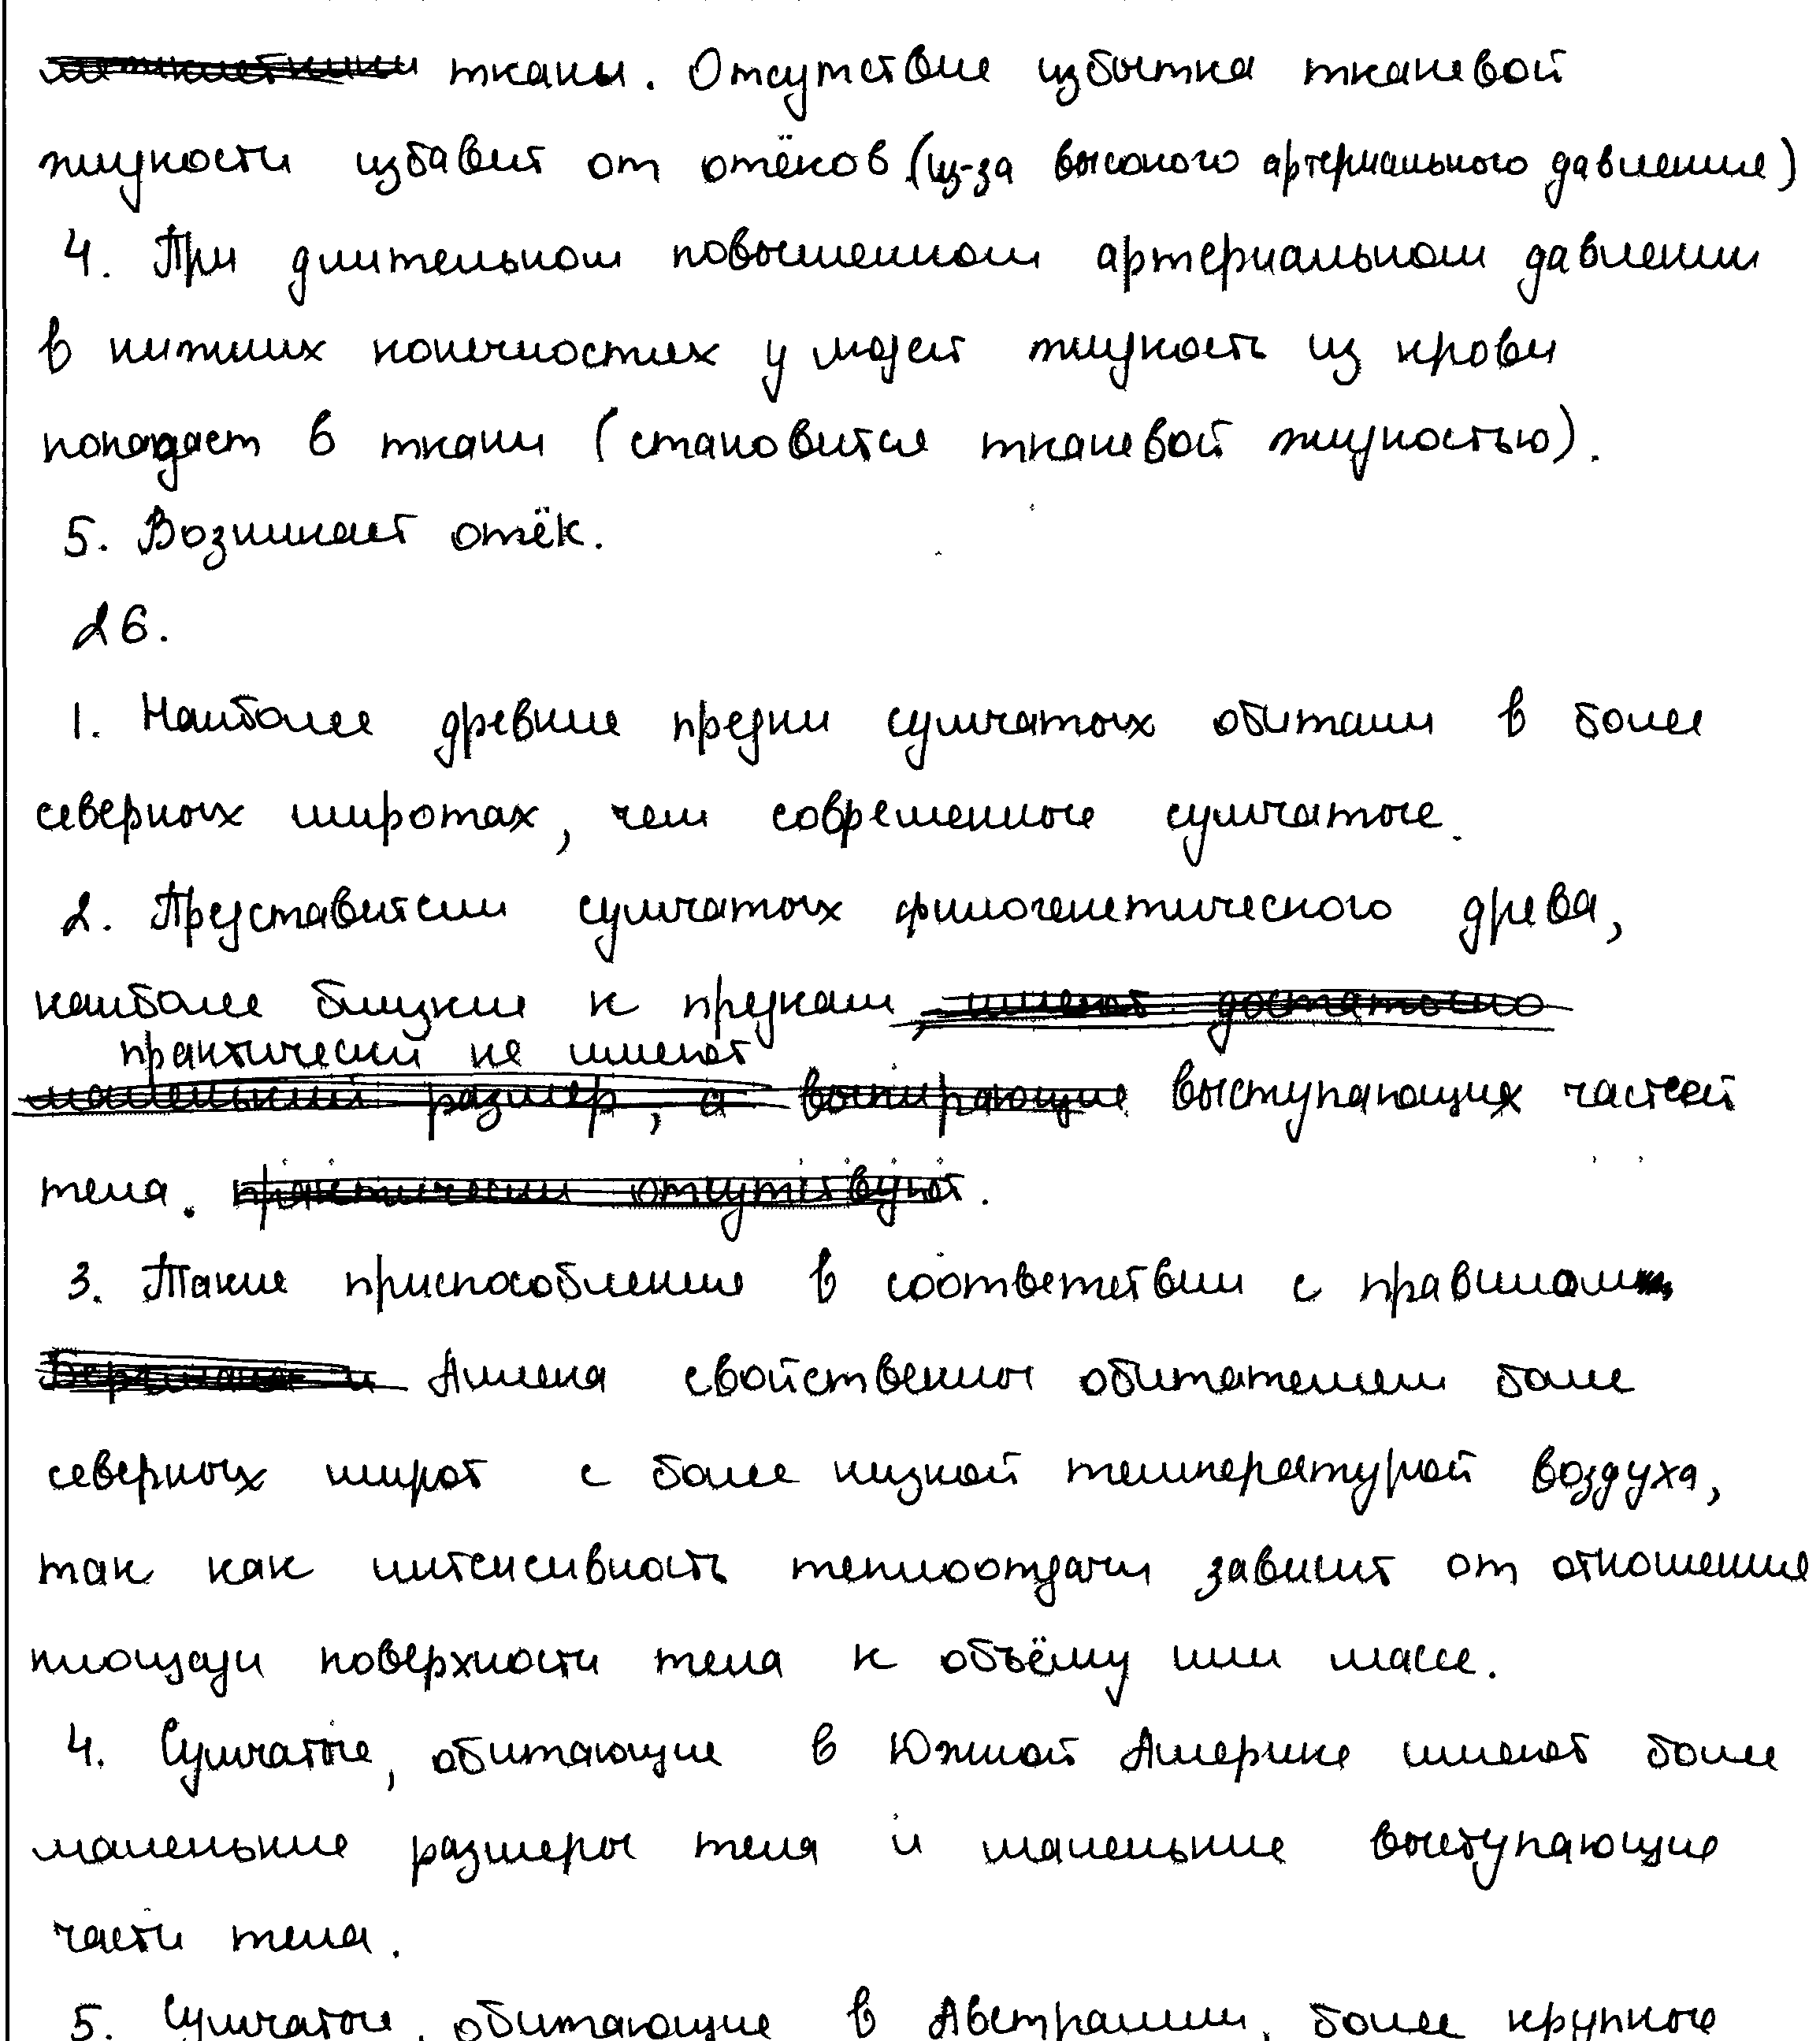 ткани. Отсутствие избытка тканевой
жидкости избавит от отёков (из-за высокого артериального давления)
4. При длительном повышенном артериальном давлении
в нижних конечностях у людей жидкость из крови
попадает в ткани (становится тканевой жидкостью).
5. Возникает отёк.
26.
1. Наиболее древние предки сумчатых обитали в более
северных широтах, чем современные сумчатые.
2. Представители сумчатых филогенетического древа,
наиболее близкие к предкам, имеют достаточно
практически не имеют
маленький размер, а выпирающие выступающих частей
тела. практически отсутствуют.
3. Такие приспособления в соответствии с правилом
Бергмана и Аллена свойственны обитателям более
северных широт с более низкой температурой воздуха,
так как интенсивность теплоотдачи зависит от отношения
площади поверхности тела к объёму или массе.
4. Сумчатые, обитающие в Южной Америке имеют более
маленькие размеры тела и маленькие выступающие
части тела.
5. Сумчатые, обитающие в Австралии, более крупные